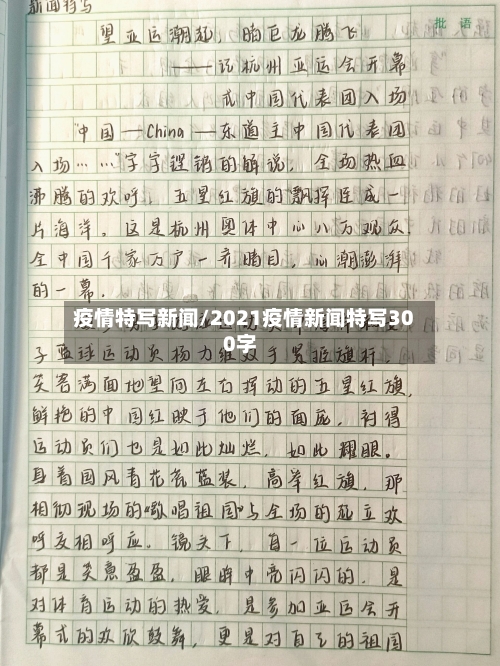 新闻特写
批 语
望亚运潮起，瞻巨龙腾飞
——记杭州亚运会开幕
式中国代表团入场
"中国—China—东道主中国代表团
入场……"字字铿锵的解说，全场热血
沸腾的欢呼，五星红旗的飘挥连成一
片海洋。这是杭州奥体中心八万观众，
全中国千家万户一齐瞩目，心潮澎湃
的一幕。
疫情特写新闻/2021疫情新闻特写30
0字
子篮球运动员杨力维双手紧握旗杆，
笑容满面地望向左右挥动的五星红旗，
鲜艳的中国红映于他们的面庞，衬得
运动员们也是如此灿烂，如此耀眼。
身着国风青花瓷蓝装，高举红旗，那
相彻现场的"歌唱祖国"与全场的起立欢
呼交相呼应。镜头下，每一位运动员
都是笑意盈盈，眼眸中亮闪闪的，是
对体育运动的热爱，是参加亚运会开
幕式的欢欣鼓舞，更是对自己的祖国